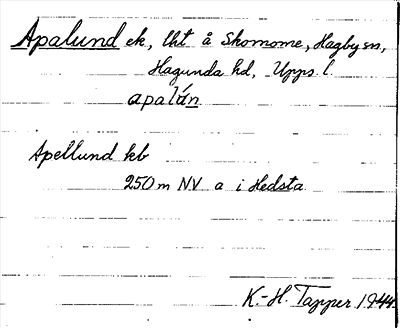 Apalund ek, lht å Skomome, Hagby sn,
Hagunda hd, Upps. l.
apalún
Apellund kb
250 m NV a i Hedsta
K.-H. Tapper 1944